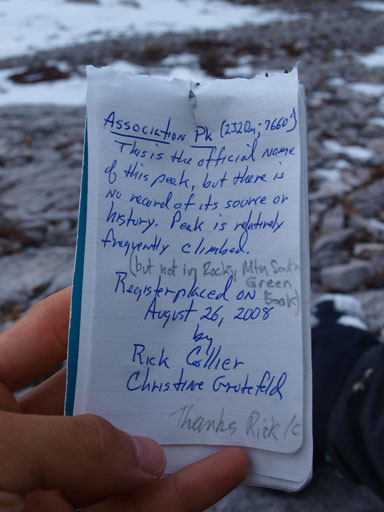 Association Pk (2320m; 7660')
This is the official name
of this peak, but there is
no record of its source or
history. Peak is relatively
frequently climbed.
(but not in Rocky Mtn South
Green
Book)
Register placed on
August 26, 2008
by
Rick Collier
Christine Grotefeld
Thanks Rick